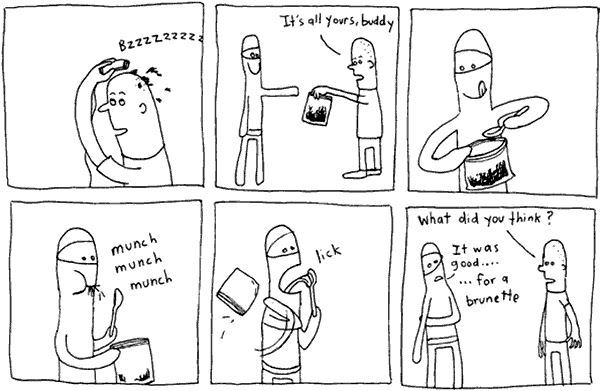 Bzzzzzzzzz
It's all yours, buddy
munch
munch
munch
lick
What did you think?
It was
good....
...for a
brunette